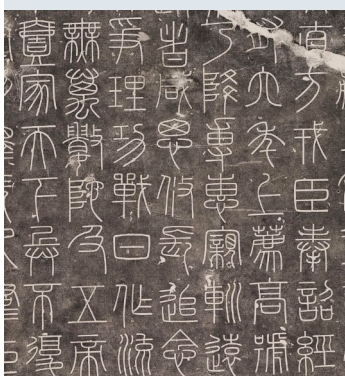 直方戎臣奉詔經
有六年上薦高號
乃降專惠親巡遠
者咸思攸長追念
爭理功戰日作流
無萬數陀及五帝
壹家天下兵不復